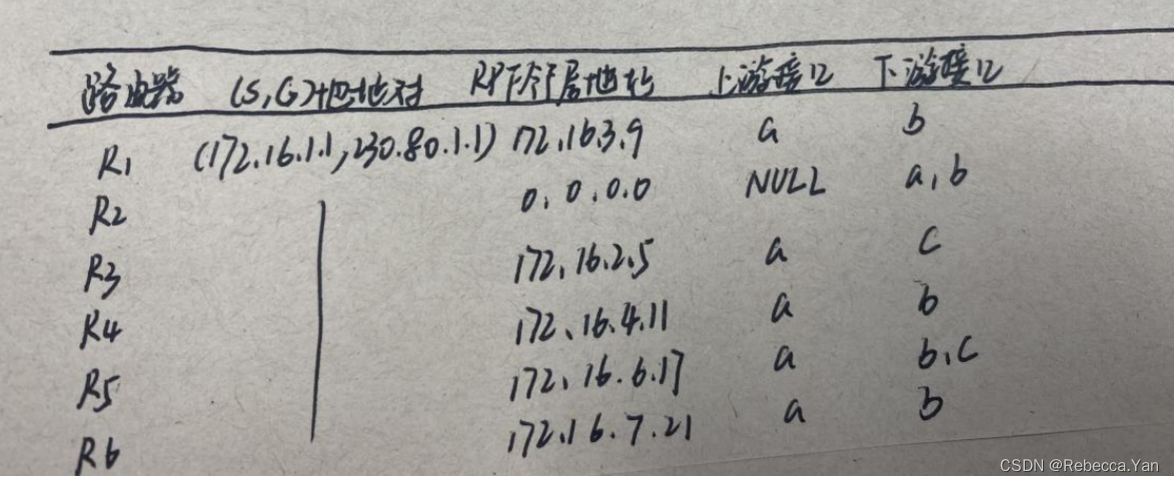 路由器 (S,G)地址对 RPF邻居地址 上游接口 下游接口
R1 (172.16.1.1,230.80.1.1) 172.16.3.9 a b
R2 0.0.0.0 NULL a,b
R3 172.16.2.5 a c
R4 172.16.4.11 a b
R5 172.16.6.17 a b,c
R6 172.16.7.21 a b
CSDN @Rebecca.Yan